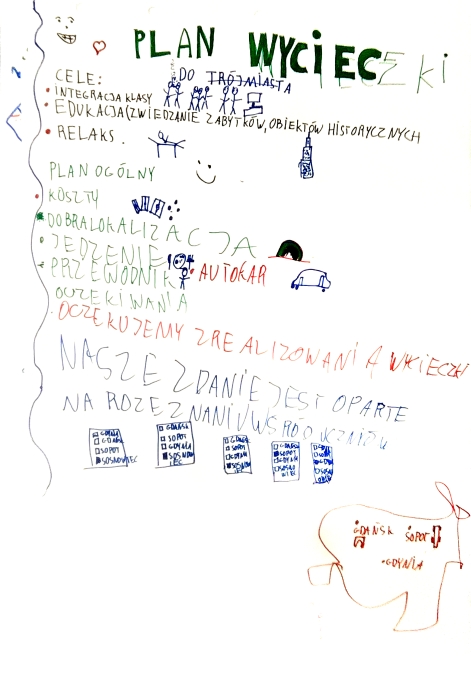 PLAN WYCIECZKI
DO TRÓJMIASTA
CELE:
• INTEGRACJA KLASY
• EDUKACJA (ZWIEDZANIE ZABYTKÓW, OBIEKTÓW HISTORYCZNYCH
• RELAKS.
PLAN OGÓLNY
• KOSZTY
• DOBRA LOKALIZACJA
• JEDZENIE
• PRZEWODNIK
• AUTOKAR
OCZEKIWANIA
• OCZEKUJEMY ZREALIZOWANIĄ WYCIECZKI
NASZE ZDANIE JEST OPARTE
NA ROZEZNANIU WŚRÓD UCZNIÓW
GDYNIA
GDAŃSK
SOPOT
SOSNOWIEC
GDAŃSK
SOPOT
GDYNIA
SOSNOWIEC
GDAŃSK
SOPOT
GDYNIA
SOSNOWIEC
GDAŃSK
SOPOT
GDYNIA
SOSNOWIEC
GDAŃSK SOPOT
• GDYNIA